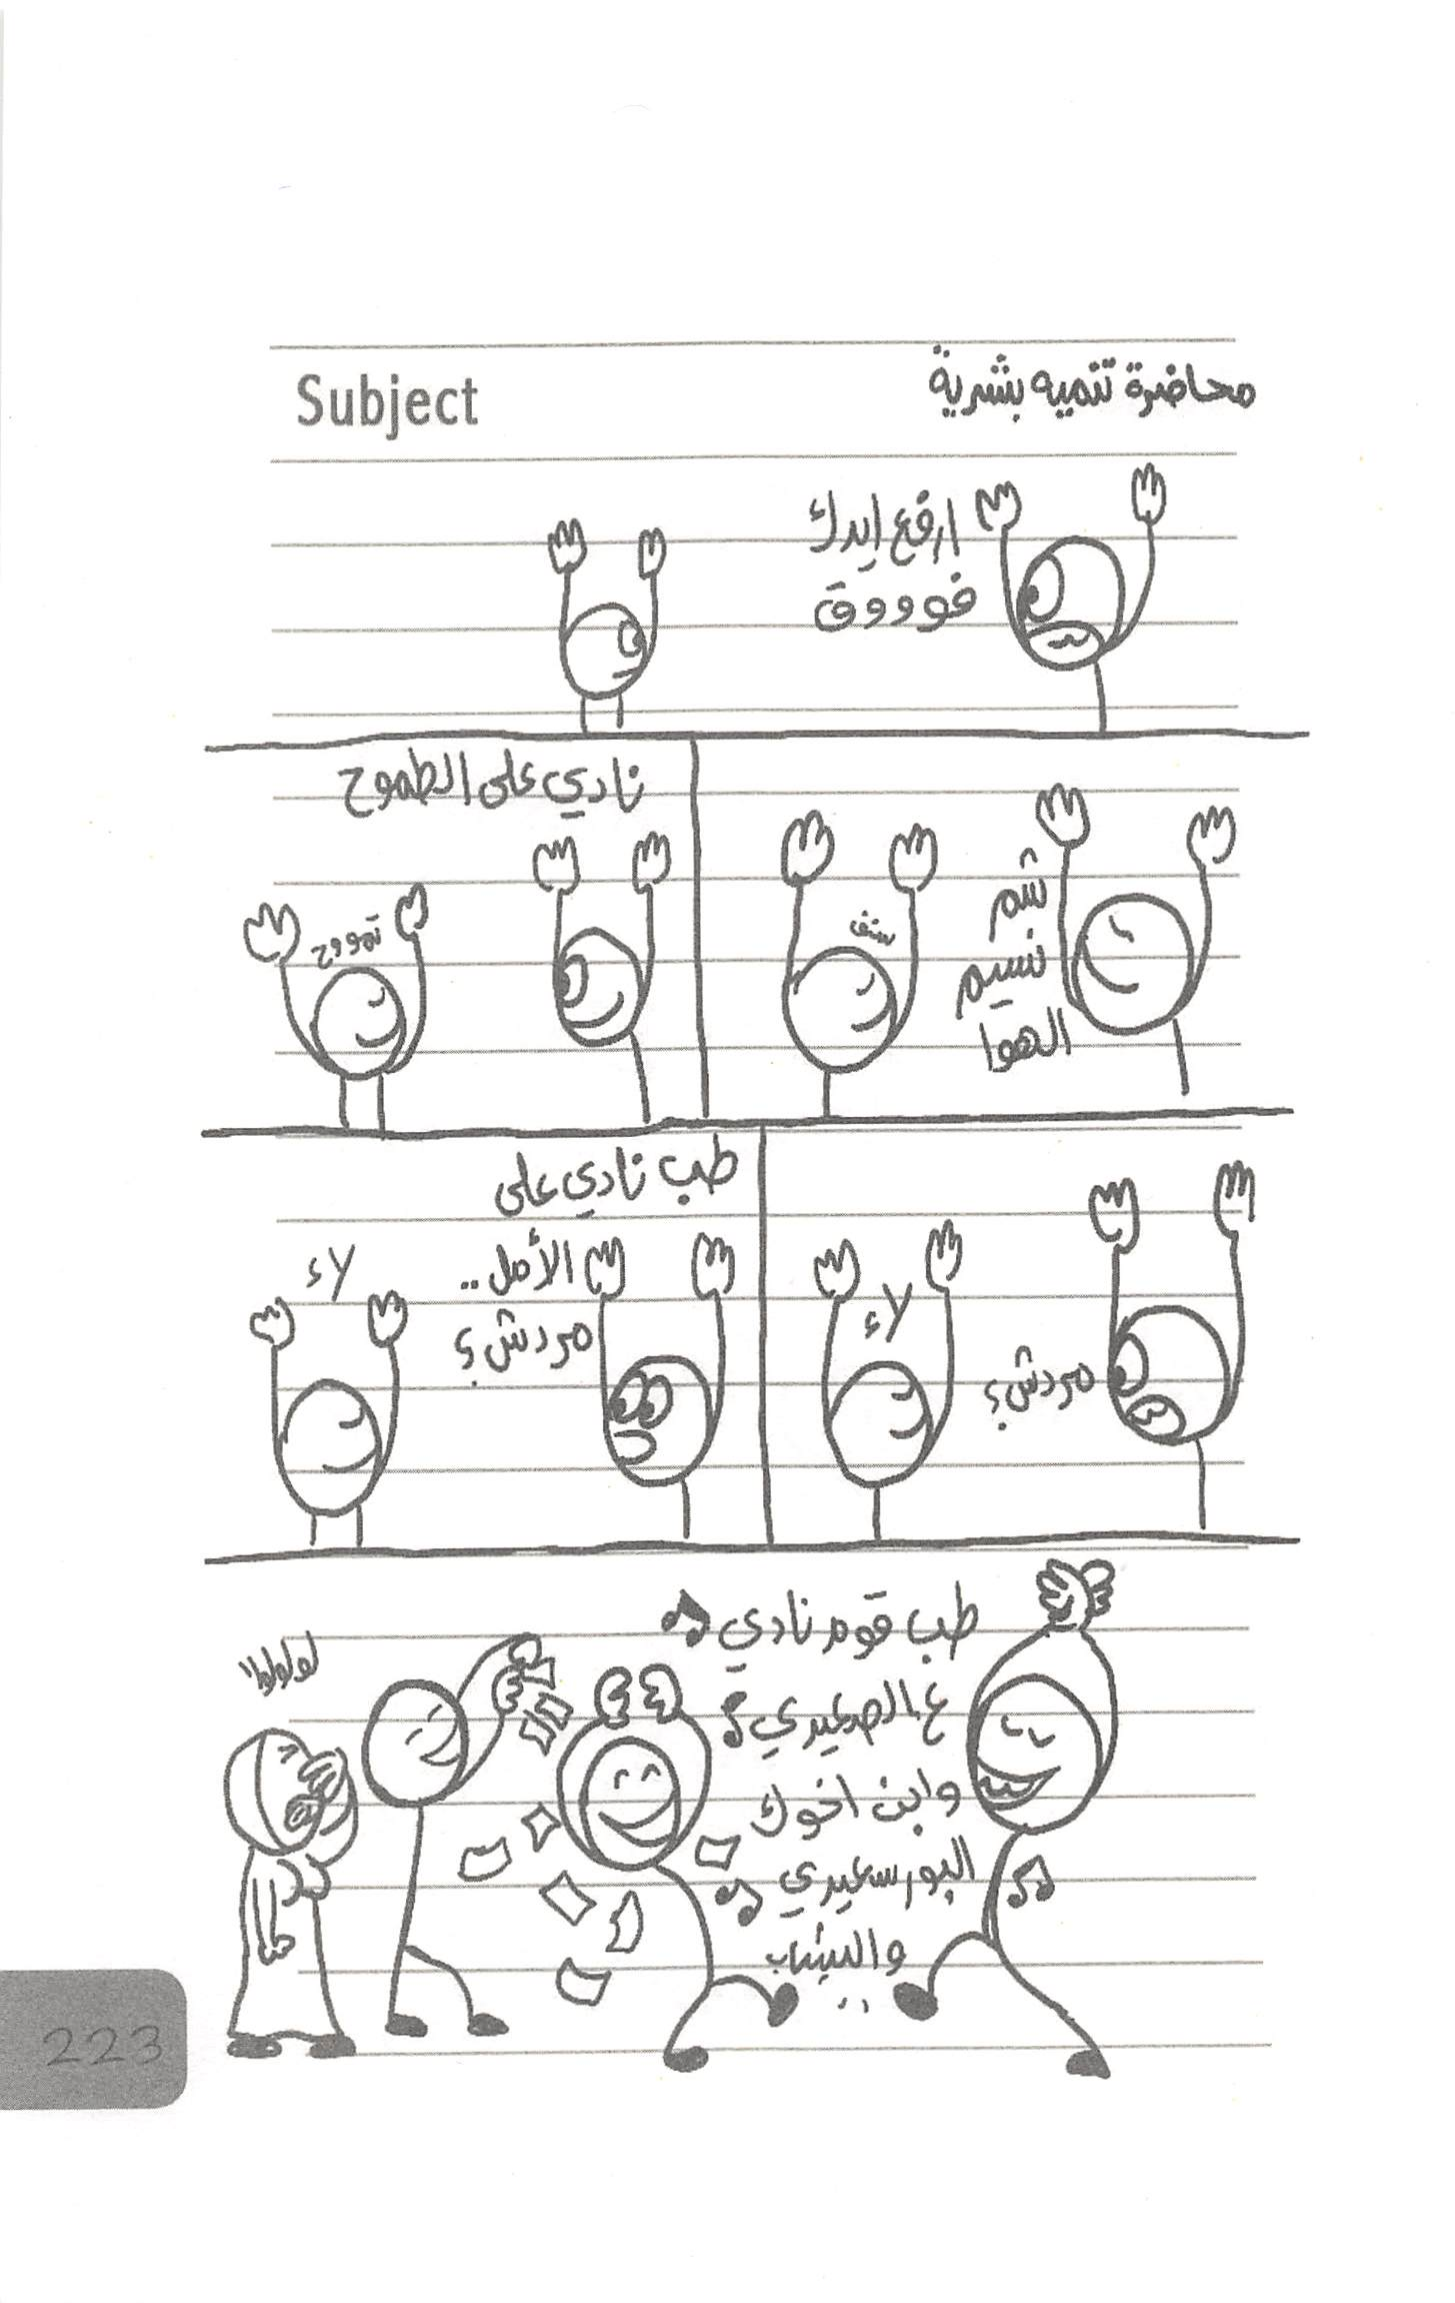 Subject
محاضرة تنميه بشرية
ارفع ايدك
فوووق
شم
نسيم
الهوا
نادي على الطموح
تموووح
مردش؟
لاء
طب نادي على
الأمل..
مردش؟
لاء
طب قوم نادي
ع الصعيدي
وابن اخوك
البورسعيدي
والشباب
..
لولولولا
223